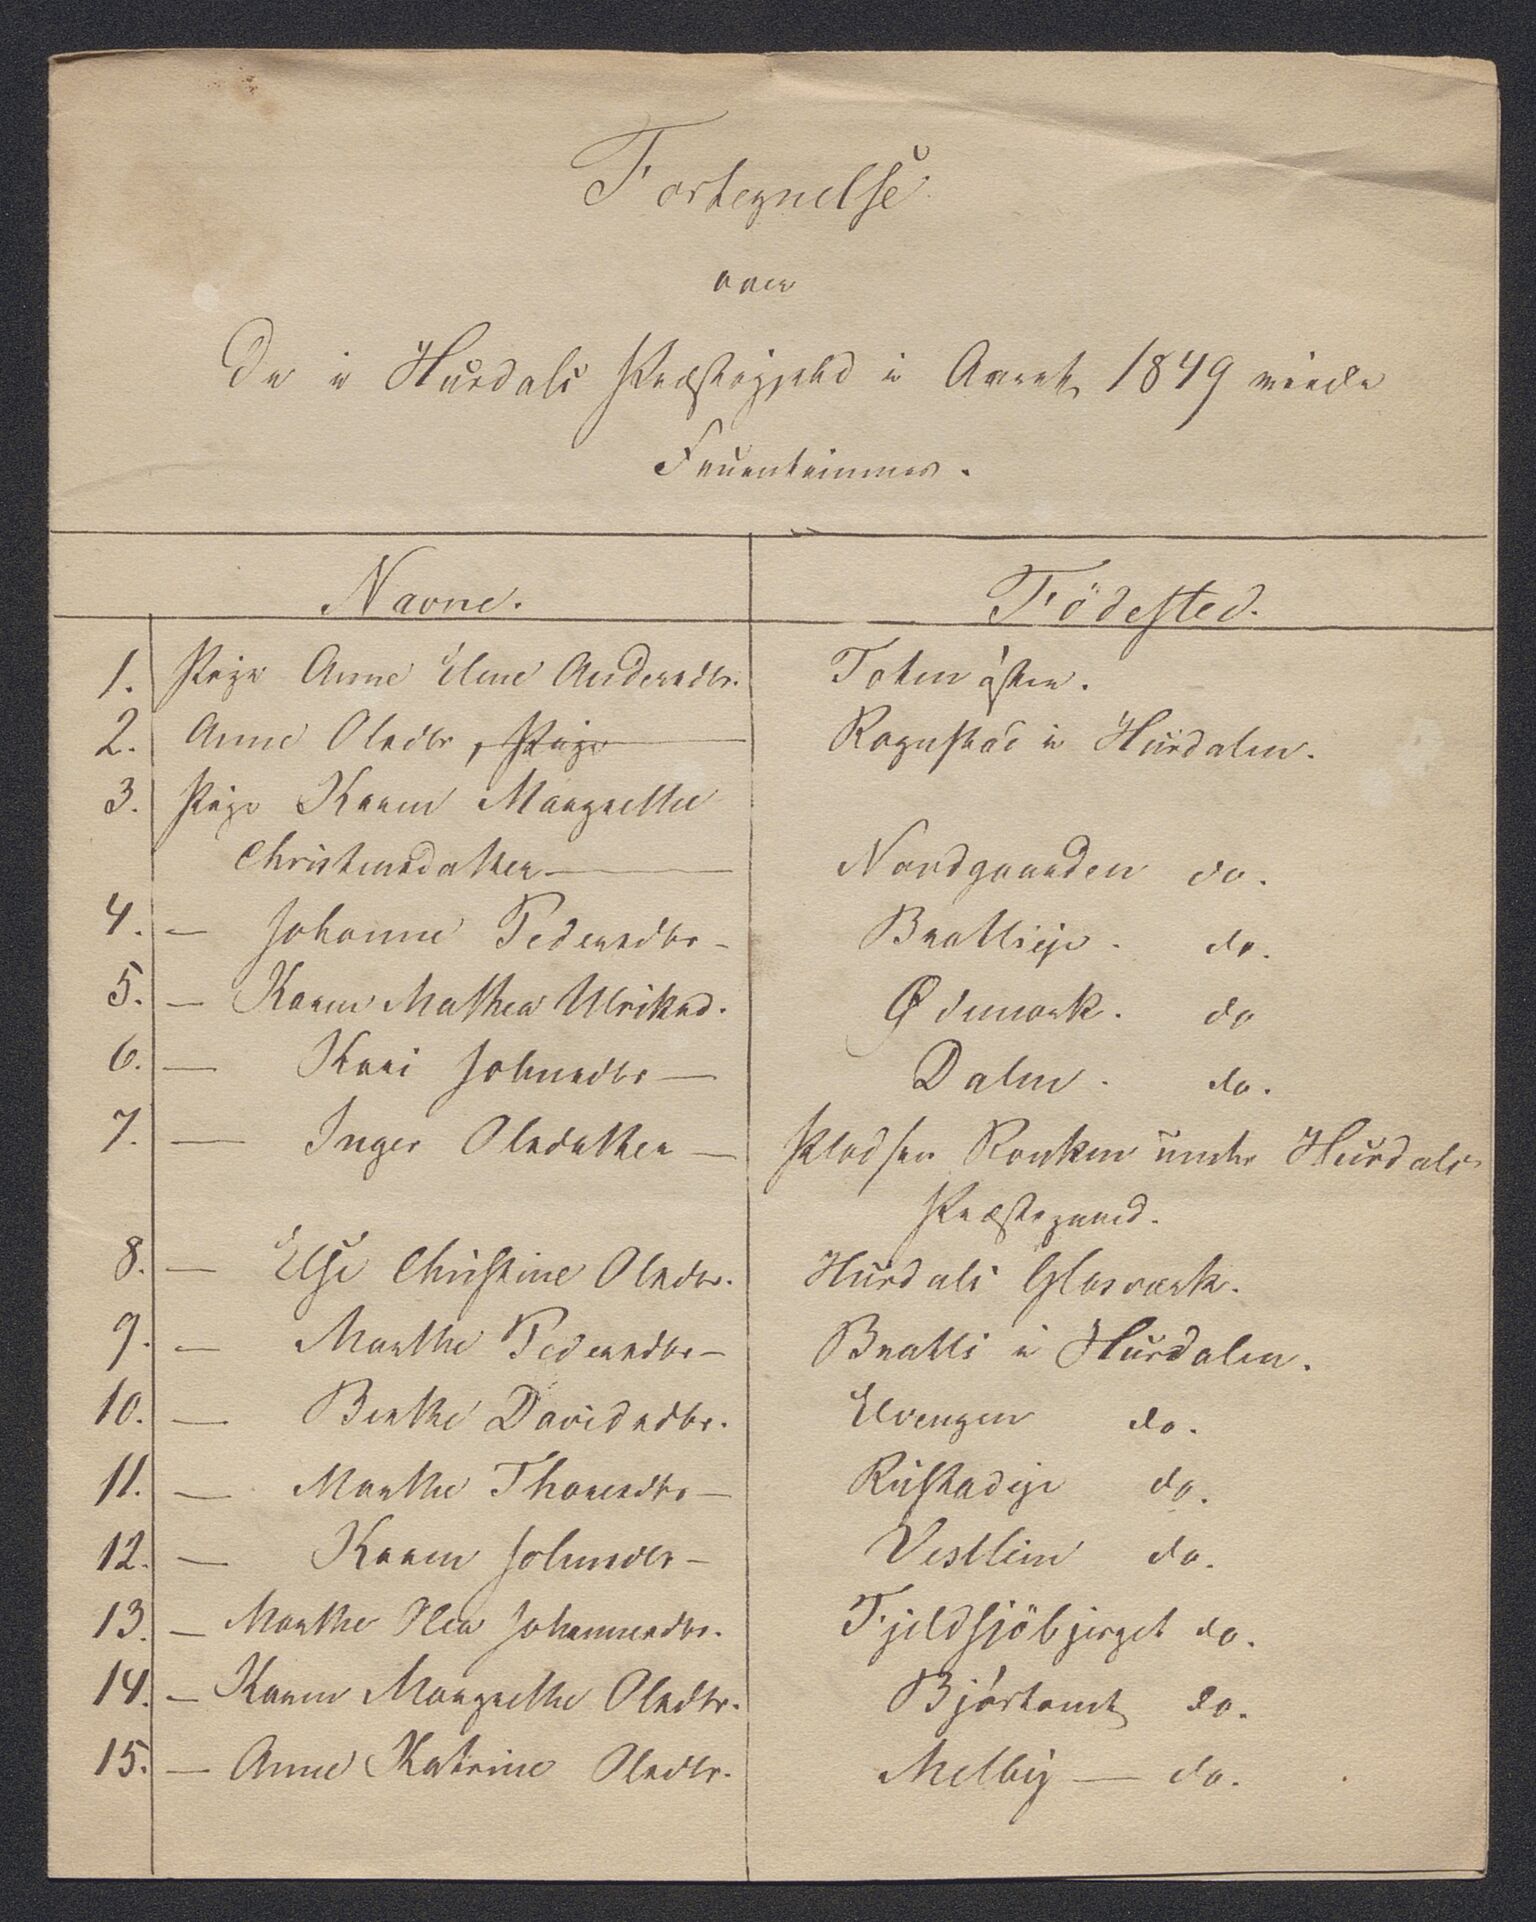 Fortegnelse
over
De i Hurdals Præstegjeld i Aaret 1849 viede
Fruentimmer.
Navne. Födested.
1. Pige Anne Eline Andersdtr. Toten östre.
2. Anne Olsdtr, Pige Rognstad i Hurdalen.
3. Pige Karen Margrethe
Christensdatter Nordgaarden do.
4. – Johanne Pedersdtr – Brattieje. do.
5. – Karen Mathea Ulriksd. Ødemark. do
6. – Kari Johnsdtr – Dalen. do.
7. – Inger Olsdatter – Pladsen under Hurdals
Præstegaard.
8. – Else Christine Olsdtr. Hurdals Glasværk.
9. – Marthe Pedersdtr – Bratli i Hurdalen.
10. – Berthe Davidsdtr. Elvengen do.
11. – Marthe Thorersdtr – Rustadeje do.
12. – Karen Johnsdtr – Vestlien do.
13. – Marthe Olea Johannesdtr. Fjeldsjöbjerget do.
14. – Karen Margrethe Olsdtr. Björtomt do.
15. – Anne Katrine Olsdtr. Melby – do.